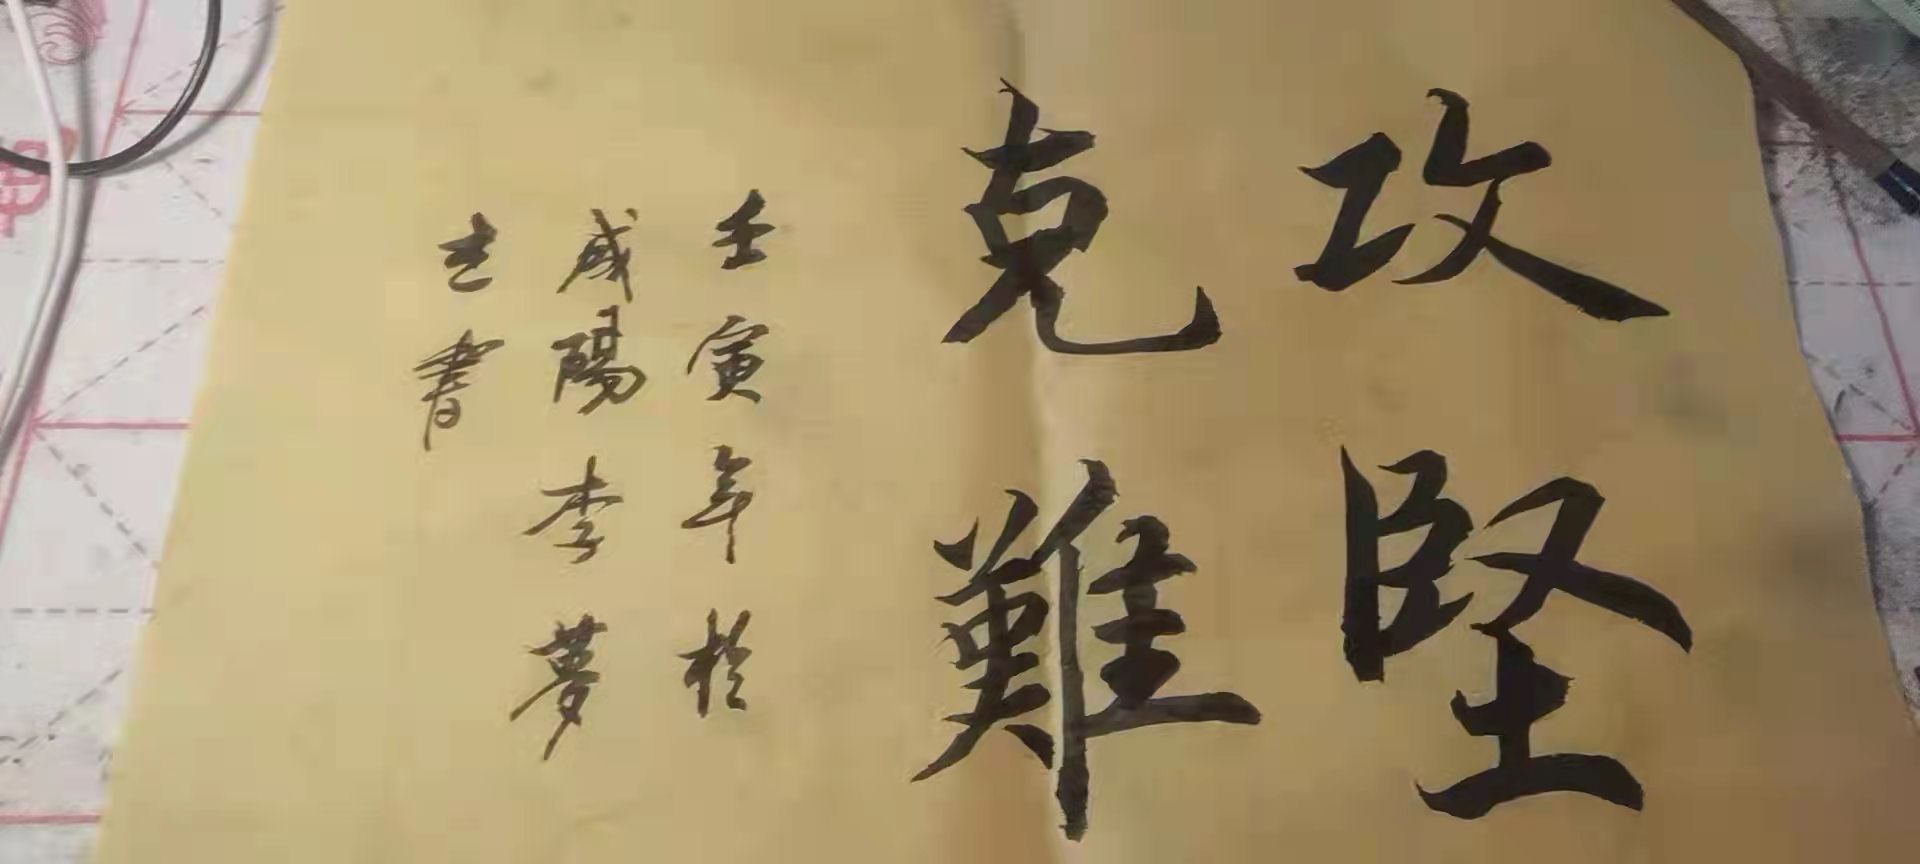 攻堅
克難
壬寅年於
咸陽李夢
書